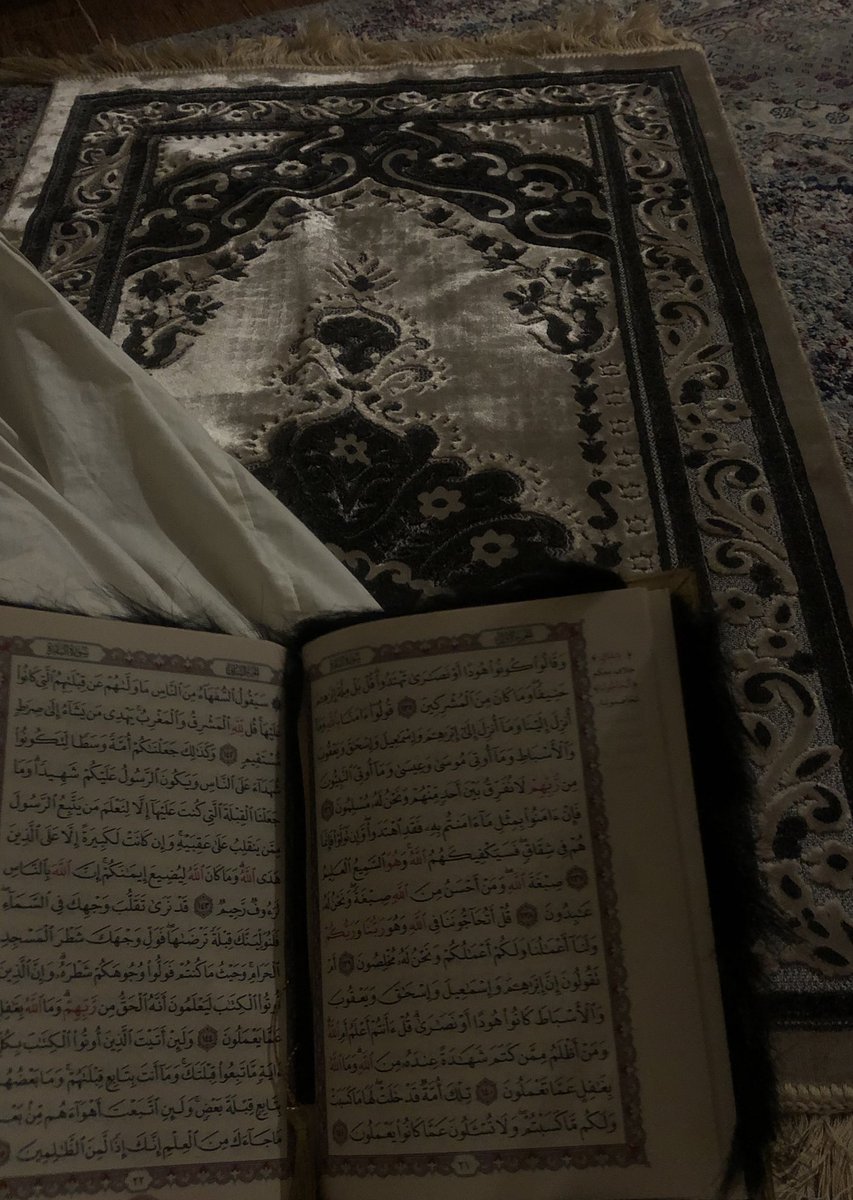 سُورَةُ البَقَرَةِ
الجُزْءُ الأَوَّلُ
وَقَالُوا۟ كُونُوا۟ هُودًا أَوْ نَصَٰرَىٰ تَهْتَدُوا۟ قُلْ بَلْ مِلَّةَ إِبْرَٰهِـۧمَ
حَنِيفًا وَمَا كَانَ مِنَ ٱلْمُشْرِكِينَ ١٣٥ قُولُوٓا۟ ءَامَنَّا بِٱللَّهِ وَمَآ
أُنزِلَ إِلَيْنَا وَمَآ أُنزِلَ إِلَىٰٓ إِبْرَٰهِـۧمَ وَإِسْمَٰعِيلَ وَإِسْحَٰقَ وَيَعْقُوبَ
وَٱلْأَسْبَاطِ وَمَآ أُوتِىَ مُوسَىٰ وَعِيسَىٰ وَمَآ أُوتِىَ ٱلنَّبِيُّونَ
مِن رَّبِّهِمْ لَا نُفَرِّقُ بَيْنَ أَحَدٍ مِّنْهُمْ وَنَحْنُ لَهُۥ مُسْلِمُونَ ١٣٦
فَإِنْ ءَامَنُوا۟ بِمِثْلِ مَآ ءَامَنتُم بِهِۦ فَقَدِ ٱهْتَدَوا۟ وَّإِن تَوَلَّوْا۟ فَإِنَّمَا
هُمْ فِى شِقَاقٍ فَسَيَكْفِيكَهُمُ ٱللَّهُ وَهُوَ ٱلسَّمِيعُ ٱلْعَلِيمُ
١٣٧ صِبْغَةَ ٱللَّهِ وَمَنْ أَحْسَنُ مِنَ ٱللَّهِ صِبْغَةً وَنَحْنُ لَهُۥ
عَٰبِدُونَ ١٣٨ قُلْ أَتُحَآجُّونَنَا فِى ٱللَّهِ وَهُوَ رَبُّنَا وَرَبُّكُمْ
وَلَنَآ أَعْمَٰلُنَا وَلَكُمْ أَعْمَٰلُكُمْ وَنَحْنُ لَهُۥ مُخْلِصُونَ ١٣٩ أَمْ
تَقُولُونَ إِنَّ إِبْرَٰهِـۧمَ وَإِسْمَٰعِيلَ وَإِسْحَٰقَ وَيَعْقُوبَ
وَٱلْأَسْبَاطَ كَانُوا۟ هُودًا أَوْ نَصَٰرَىٰ قُلْ ءَأَنتُمْ أَعْلَمُ أَمِ ٱللَّهُ
وَمَنْ أَظْلَمُ مِمَّن كَتَمَ شَهَٰدَةً عِندَهُۥ مِنَ ٱللَّهِ وَمَا ٱللَّهُ
بِغَٰفِلٍ عَمَّا تَعْمَلُونَ ١٤٠ تِلْكَ أُمَّةٌ قَدْ خَلَتْ لَهَا مَا كَسَبَتْ
وَلَكُم مَّا كَسَبْتُمْ وَلَا تُسْـَٔلُونَ عَمَّا كَانُوا۟ يَعْمَلُونَ ١٤١
٢١
الجُزْءُ الثَّانِي
سُورَةُ البَقَرَةِ
۞ سَيَقُولُ ٱلسُّفَهَآءُ مِنَ ٱلنَّاسِ مَا وَلَّىٰهُمْ عَن قِبْلَتِهِمُ ٱلَّتِى كَانُوا۟
عَلَيْهَا قُل لِّلَّهِ ٱلْمَشْرِقُ وَٱلْمَغْرِبُ يَهْدِى مَن يَشَآءُ إِلَىٰ صِرَٰطٍ
مُّسْتَقِيمٍ ١٤٢ وَكَذَٰلِكَ جَعَلْنَٰكُمْ أُمَّةً وَسَطًا لِّتَكُونُوا۟
شُهَدَآءَ عَلَى ٱلنَّاسِ وَيَكُونَ ٱلرَّسُولُ عَلَيْكُمْ شَهِيدًا وَمَا
جَعَلْنَا ٱلْقِبْلَةَ ٱلَّتِى كُنتَ عَلَيْهَآ إِلَّا لِنَعْلَمَ مَن يَتَّبِعُ ٱلرَّسُولَ
مِمَّن يَنقَلِبُ عَلَىٰ عَقِبَيْهِ وَإِن كَانَتْ لَكَبِيرَةً إِلَّا عَلَى ٱلَّذِينَ
هَدَى ٱللَّهُ وَمَا كَانَ ٱللَّهُ لِيُضِيعَ إِيمَٰنَكُمْ إِنَّ ٱللَّهَ بِٱلنَّاسِ
لَرَءُوفٌ رَّحِيمٌ ١٤٣ قَدْ نَرَىٰ تَقَلُّبَ وَجْهِكَ فِى ٱلسَّمَآءِ
فَلَنُوَلِّيَنَّكَ قِبْلَةً تَرْضَىٰهَا فَوَلِّ وَجْهَكَ شَطْرَ ٱلْمَسْجِدِ
ٱلْحَرَامِ وَحَيْثُ مَا كُنتُمْ فَوَلُّوا۟ وُجُوهَكُمْ شَطْرَهُۥ وَإِنَّ ٱلَّذِينَ
أُوتُوا۟ ٱلْكِتَٰبَ لَيَعْلَمُونَ أَنَّهُ ٱلْحَقُّ مِن رَّبِّهِمْ وَمَا ٱللَّهُ بِغَٰفِلٍ
عَمَّا يَعْمَلُونَ ١٤٤ وَلَئِنْ أَتَيْتَ ٱلَّذِينَ أُوتُوا۟ ٱلْكِتَٰبَ بِكُلِّ
ءَايَةٍ مَّا تَبِعُوا۟ قِبْلَتَكَ وَمَآ أَنتَ بِتَابِعٍ قِبْلَتَهُمْ وَمَا بَعْضُهُم
بِتَابِعٍ قِبْلَةَ بَعْضٍ وَلَئِنِ ٱتَّبَعْتَ أَهْوَآءَهُم مِّنۢ بَعْدِ
مَا جَآءَكَ مِنَ ٱلْعِلْمِ إِنَّكَ إِذًا لَّمِنَ ٱلظَّٰلِمِينَ
٢٢